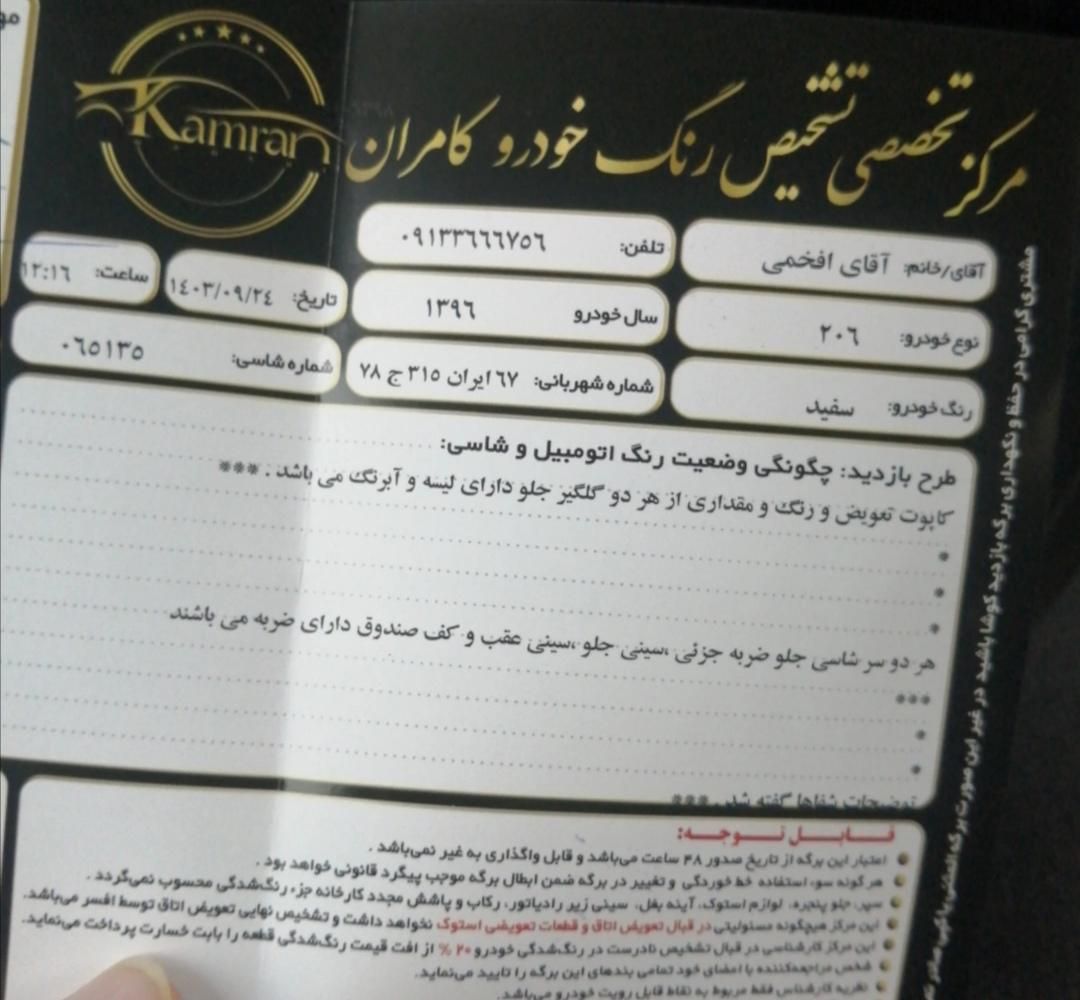 Kamran
مرکز تخصصی تشخیص رنگ خودرو کامران
آقای/خانم: آقای افخمی
تلفن: ۰۹۱۳۳۶۶۶۷۵۶
نوع خودرو: ۲۰۶
سال خودرو ۱۳۹۶
تاریخ: ۱۴۰۳/۰۹/۲۴
ساعت: ۱۲:۱۶
رنگ خودرو: سفید
شماره شهربانی: ۶۷ ایران ۳۱۵ ج ۷۸
شماره شاسی: ۰۶۵۱۳۵
طرح بازدید: چگونگی وضعیت رنگ اتومبیل و شاسی:
کاپوت تعویض و رنگ و مقداری از هر دو گلگیر جلو دارای لیسه و آبرنگ می باشد . ***
*
*
*
هر دو سر شاسی جلو ضربه جزئی ،سینی جلو ،سینی عقب و کف صندوق دارای ضربه می باشند
***
*
*
توضیحات شفاها گفته شد . ***
قابل توجه:
اعتبار این برگه از تاریخ صدور ۴۸ ساعت می‌باشد و قابل واگذاری به غیر نمی‌باشد .
هر گونه سوء استفاده خط خوردگی و تغییر در برگه ضمن ابطال برگه موجب پیگرد قانونی خواهد بود .
سپر، جلو پنجره، لوازم استوک، آینه بغل، سینی زیر رادیاتور، رکاب و پاشش مجدد کارخانه جزء رنگ‌شدگی محسوب نمی‌گردد .
این مرکز هیچگونه مسئولیتی در قبال تعویض اتاق و قطعات تعویضی استوک نخواهد داشت و تشخیص نهایی تعویض اتاق توسط افسر می‌باشد.
این مرکز کارشناسی در قبال تشخیص نادرست در رنگ‌شدگی خودرو ۲۰ % از افت قیمت رنگ‌شدگی قطعه را بابت خسارت پرداخت می‌نماید.
شخص مراجعه‌کننده با امضای خود تمامی بندهای این برگه را تایید می‌نماید.
نظریه کارشناس فقط مربوط به نقاط قابل رویت خودرو می‌باشد.
مشتری گرامی در حفظ و نگهداری برگه بازدید کوشا باشید در غیر این صورت برگه المثنی یا کپی صادر